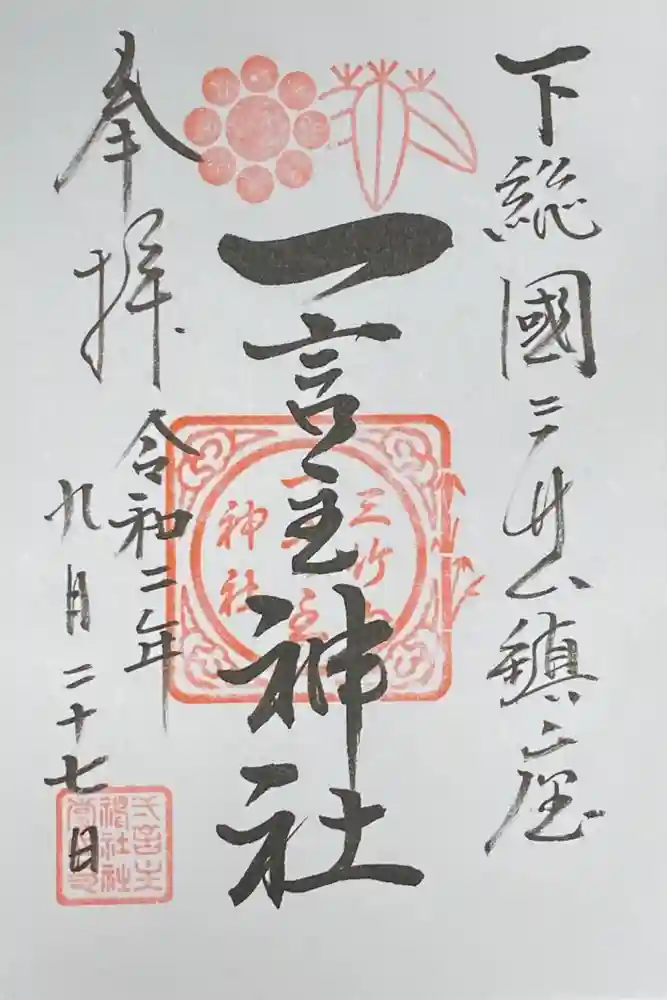 下総國三竹山鎮座
一言主神社
奉拝
令和二年
九月二十七日
三竹山
一言主
神社